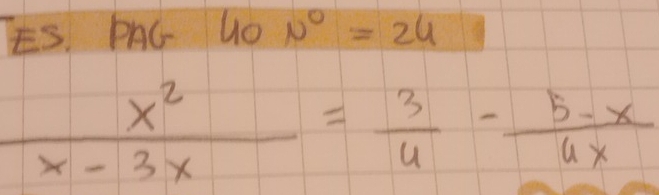 ES. PAG 40 N° = 24
x² / x - 3x = 3/4 - 5 - x / 4x